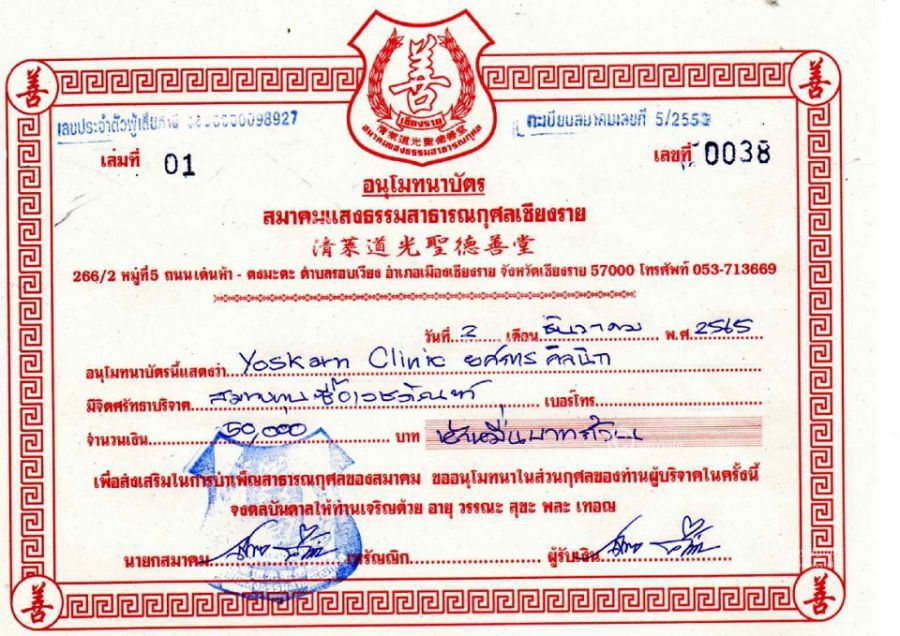 善
善
善
เชียงราย
清萊道光聖德善堂
สมาคมแสงธรรมสาธารณกุศล
เลขประจำตัวผู้เสียภาษี 0000098927
ทะเบียนสมาคมเลขที่ 5/2553
เล่มที่ 01
เลขที่ 0038
อนุโมทนาบัตร
สมาคมแสงธรรมสาธารณกุศลเชียงราย
清萊道光聖德善堂
266/2 หมู่ที่5 ถนนเด่นห้า - ดงมะดะ ตำบลรอบเวียง อำเภอเมืองเชียงราย จังหวัดเชียงราย 57000 โทรศัพท์ 053-713669
วันที่ 2 เดือน ธันวาคม พ.ศ. 2565
อนุโมทนาบัตรนี้แสดงว่า Yoskarn Clinic ยศกร คลินิก
มีจิตศรัทธาบริจาค สมทบทุนซื้อเวชภัณฑ์ เบอร์โทร
จำนวนเงิน 50,000 บาท ห้าหมื่นบาทถ้วน
เพื่อส่งเสริมในการบำเพ็ญสาธารณกุศลของสมาคม ขออนุโมทนาในส่วนกุศลของท่านผู้บริจาคในครั้งนี้
จงดลบันดาลให้ท่านเจริญด้วย อายุ วรรณะ สุขะ พละ เทอญ
นายกสมาคม เหรัญญิก ผู้รับเงิน
善
善